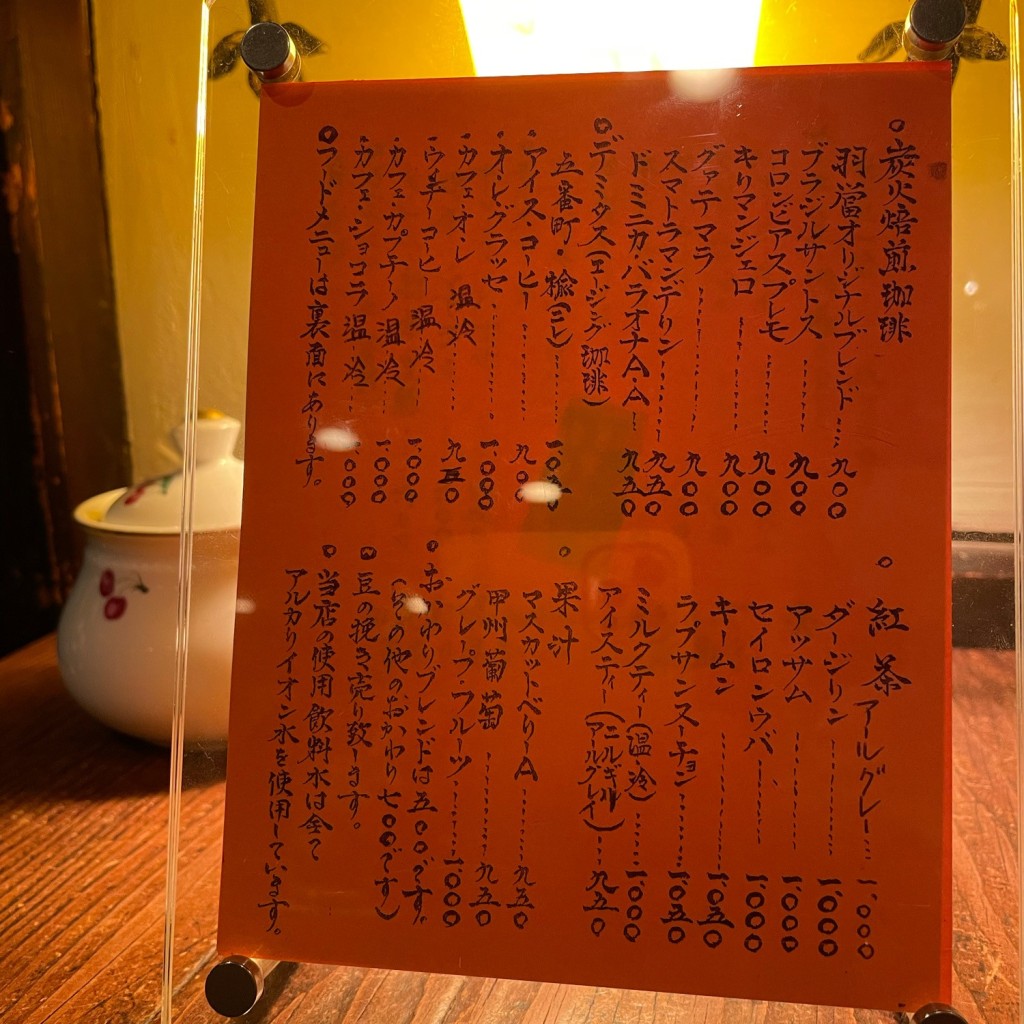 ○炭火焙煎珈琲
羽當オリジナルブレンド 九〇〇
ブラジルサントス 九〇〇
コロンビアスプレモ 九〇〇
キリマンジェロ 九〇〇
グァテマラ 九〇〇
スマトラマンデリン 九五〇
ドミニカ・バラオナA・A 九五〇
○デミタス(エージング珈琲)
五番町・
・アイス・コーヒー 九〇〇
・オ・レ・グラッセ 一、〇〇〇
・カフェ・オ・レ 温 冷 九五〇
・ウィンナーコーヒー 温 冷 一、〇〇〇
・カフェ・カプチーノ 温 冷 一、〇〇〇
・カフェ・ショコラ 温 冷 一、〇〇〇
○フードメニューは裏面にあります。
○紅茶
アールグレー 一、〇〇〇
ダージリン 一、〇〇〇
アッサム 一、〇〇〇
セイロンウバ 一、〇〇〇
キームン 一、〇五〇
ラプサンスーチョン 一、〇五〇
ミルクティー(温・冷) 一、〇〇〇
アイスティー(ニルギル アールグレイ) 九五〇
○果汁
マスカットベリーA 九五〇
甲州葡萄 九五〇
グレープフルーツ 一、〇〇〇
○おかわりブレンドは五〇〇です。
(その他のおかわり七〇〇です)
○豆の挽き売り致します。
○当店の使用飲料水は全て
アルカリイオン水を使用しています。